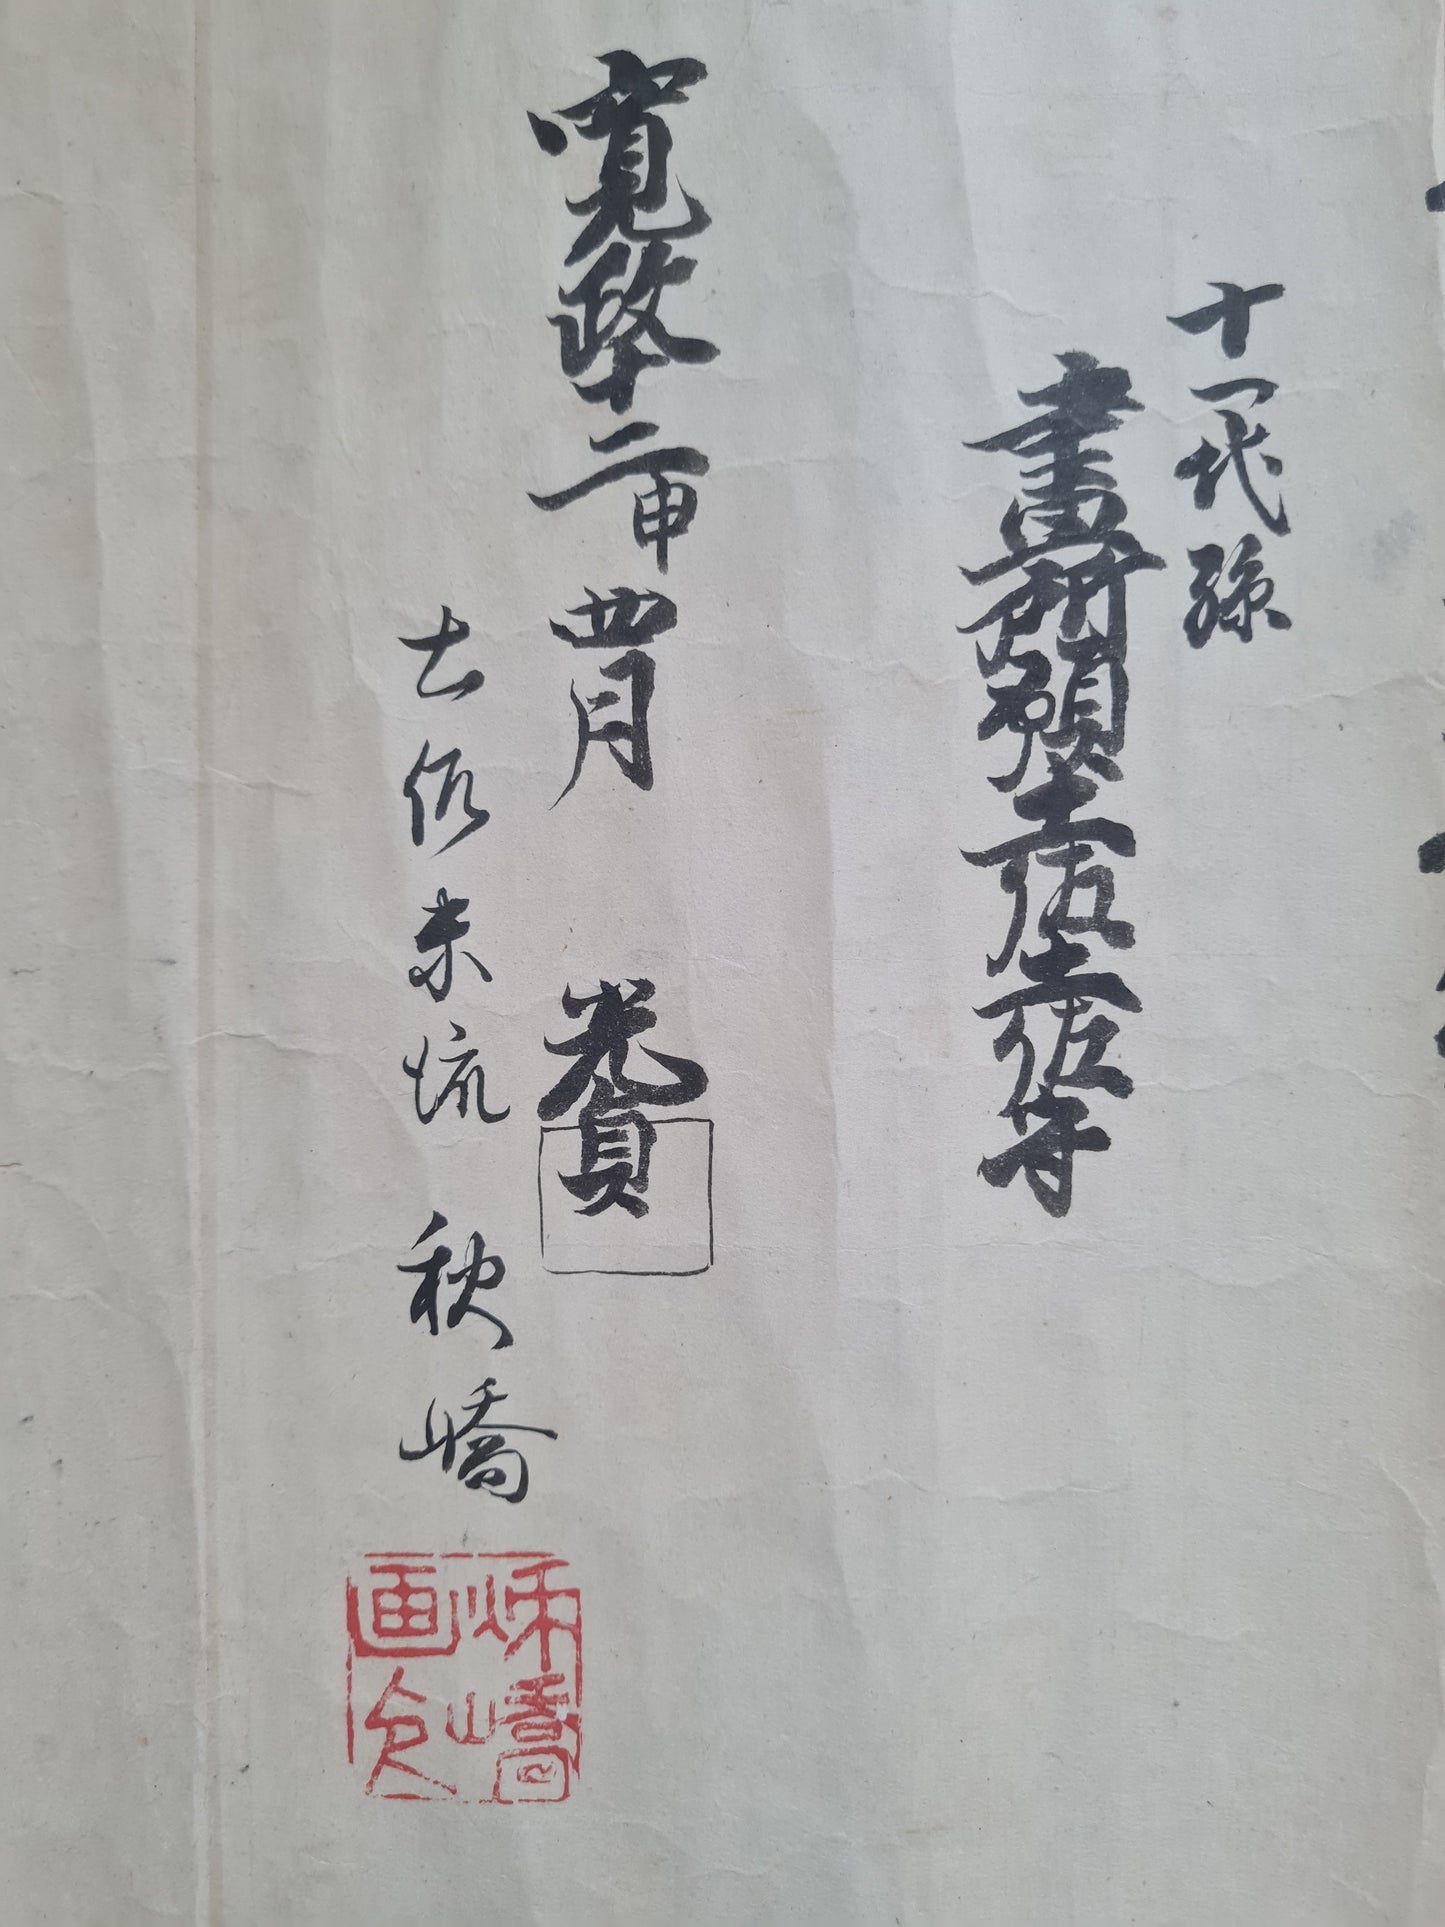 十一代孫
畫所預土佐土佐守
寛政十二申四月 光貞
土佐末流 秋嶠
秌嶠
画